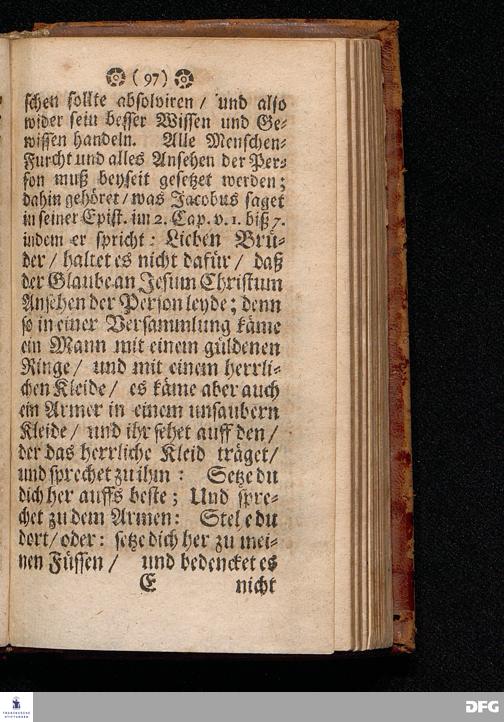 (97)
schen sollte absolviren / und also
wider sein besser Wissen und Ge-
wissen handeln. Alle Menschen-
Furcht und alles Ansehen der Per-
son muß beyseit gesetzet werden;
dahin gehöret / was Jacobus saget
in seiner Epist. im 2. Cap. v. 1. biß 7.
indem er spricht: Lieben Brü-
der / haltet es nicht dafür / daß
der Glaube an Jesum Christum
Ansehen der Person leyde; denn
so in einer Versammlung käme
ein Mann mit einem güldenen
Ringe / und mit einem herrli-
chen Kleide / es käme aber auch
ein Armer in einem unsaubern
Kleide / und ihr sehet auff den /
der das herrliche Kleid träget /
und sprechet zu ihm: Setze du
dich her auffs beste; Und spre-
chet zu dem Armen: Stel e du
dort / oder: setze dich her zu mei-
nen Füssen / und bedencket es
E nicht
FRANCKESCHE STIFTUNGEN
DFG